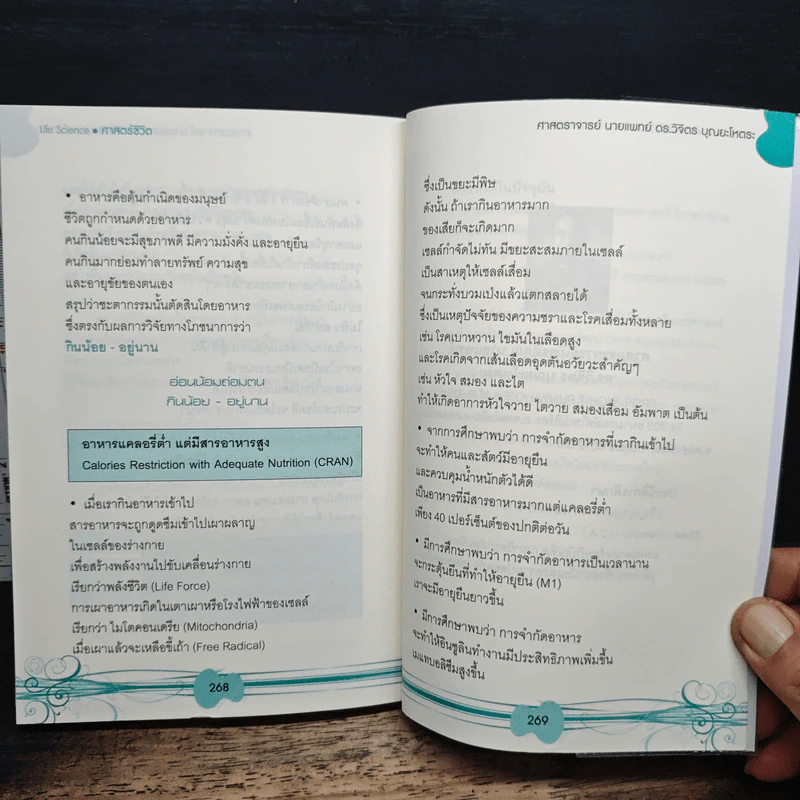 Life Science • ศาสตร์ชีวิต
• อาหารคือต้นกำเนิดของมนุษย์
ชีวิตถูกกำหนดด้วยอาหาร
คนกินน้อยจะมีสุขภาพดี มีความมั่งคั่ง และอายุยืน
คนกินมากย่อมทำลายทรัพย์ ความสุข
และอายุขัยของตนเอง
สรุปว่าชะตากรรมนั้นตัดสินโดยอาหาร
ซึ่งตรงกับผลการวิจัยทางโภชนาการว่า
กินน้อย - อยู่นาน
อ่อนน้อมถ่อมตน
กินน้อย - อยู่นาน
อาหารแคลอรี่ต่ำ แต่มีสารอาหารสูง
Calories Restriction with Adequate Nutrition (CRAN)
• เมื่อเรากินอาหารเข้าไป
สารอาหารจะถูกดูดซึมเข้าไปเผาผลาญ
ในเซลล์ของร่างกาย
เพื่อสร้างพลังงานไปขับเคลื่อนร่างกาย
เรียกว่าพลังชีวิต (Life Force)
การเผาอาหารเกิดในเตาเผาหรือโรงไฟฟ้าของเซลล์
เรียกว่า ไมโตคอนเดรีย (Mitochondria)
เมื่อเผาแล้วจะเหลือขี้เถ้า (Free Radical)
268
ศาสตราจารย์ นายแพทย์ ดร.วิจิตร บุณยะโหตระ
ซึ่งเป็นขยะมีพิษ
ดังนั้น ถ้าเรากินอาหารมาก
ของเสียก็จะเกิดมาก
เซลล์กำจัดไม่ทัน มีขยะสะสมภายในเซลล์
เป็นสาเหตุให้เซลล์เสื่อม
จนกระทั่งบวมเป่งแล้วแตกสลายได้
ซึ่งเป็นเหตุปัจจัยของความชราและโรคเสื่อมทั้งหลาย
เช่น โรคเบาหวาน ไขมันในเลือดสูง
และโรคเกิดจากเส้นเลือดอุดตันอวัยวะสำคัญๆ
เช่น หัวใจ สมอง และไต
ทำให้เกิดอาการหัวใจวาย ไตวาย สมองเสื่อม อัมพาต เป็นต้น
• จากการศึกษาพบว่า การจำกัดอาหารที่เรากินเข้าไป
จะทำให้คนและสัตว์มีอายุยืน
และควบคุมน้ำหนักตัวได้ดี
เป็นอาหารที่มีสารอาหารมากแต่แคลอรี่ต่ำ
เพียง 40 เปอร์เซ็นต์ของปกติต่อวัน
• มีการศึกษาพบว่า การจำกัดอาหารเป็นเวลานาน
จะกระตุ้นยีนที่ทำให้อายุยืน (M1)
เราจะมีอายุยืนยาวขึ้น
• มีการศึกษาพบว่า การจำกัดอาหาร
จะทำให้อินซูลินทำงานมีประสิทธิภาพเพิ่มขึ้น
เมแทบอลิซึมสูงขึ้น
269